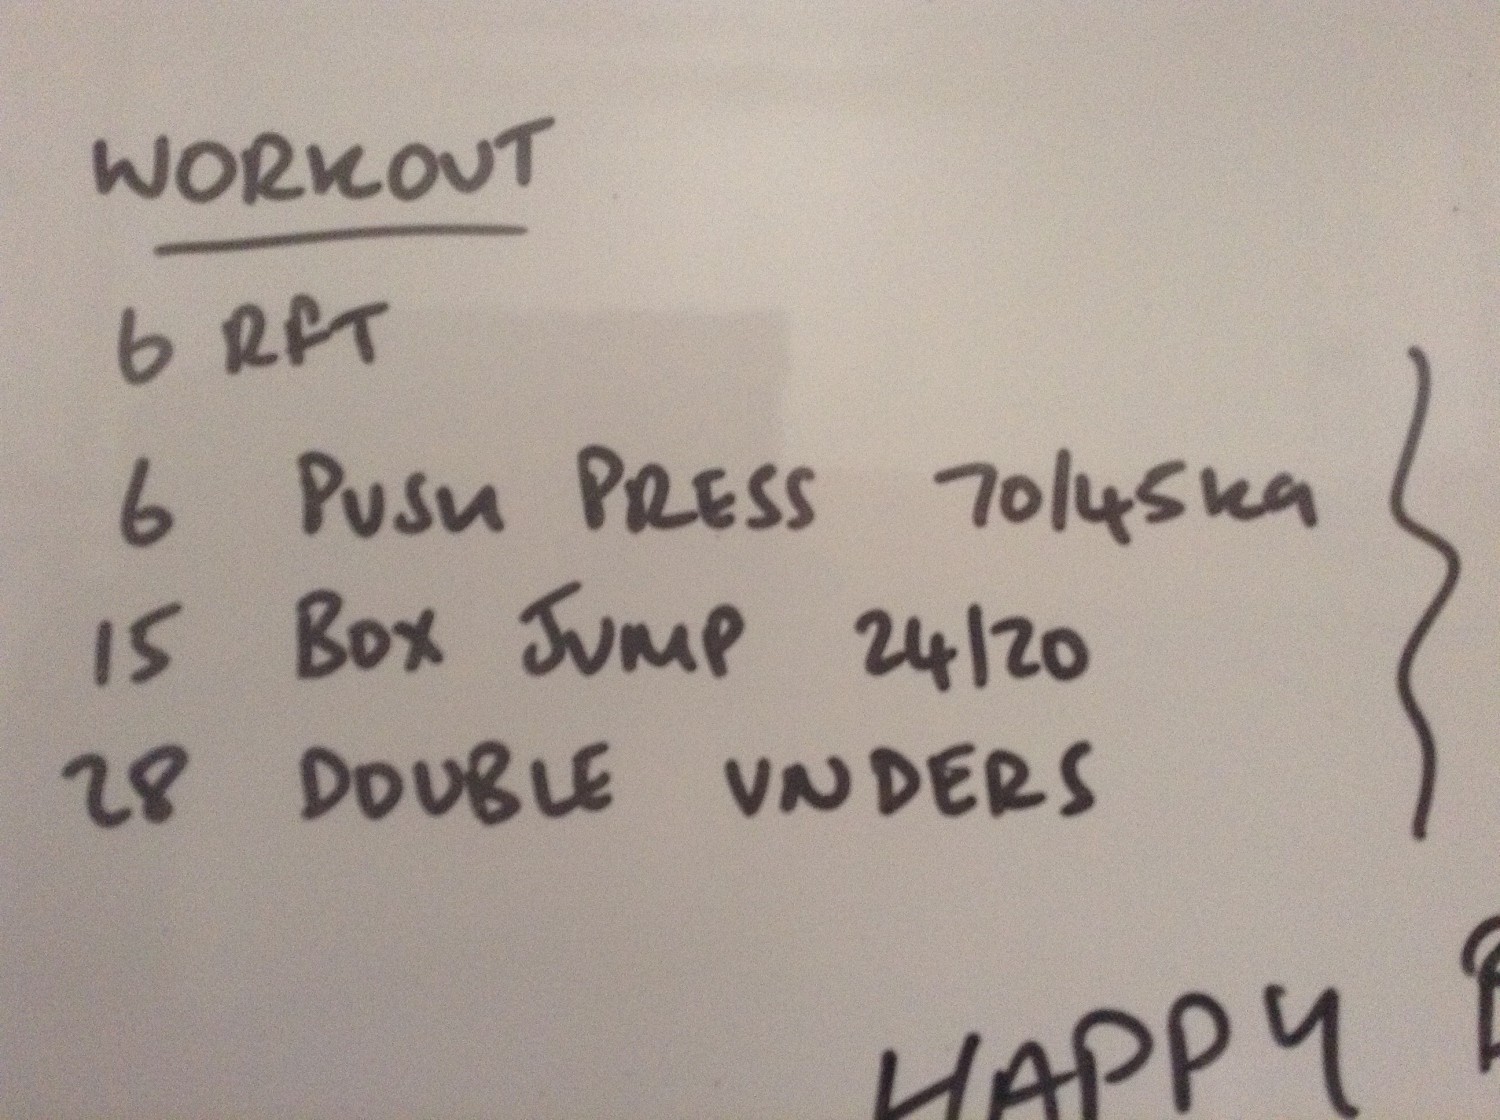 WORKOUT
6 RFT
6 PUSH PRESS 70/45kg
15 BOX JUMP 24/20
28 DOUBLE UNDERS
HAPPY